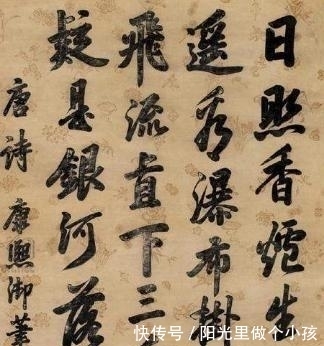 日照香爐生
遙看瀑布掛
飛流直下三
疑是銀河落
唐詩 康熙御筆
快传号 / 阳光里做个小孩